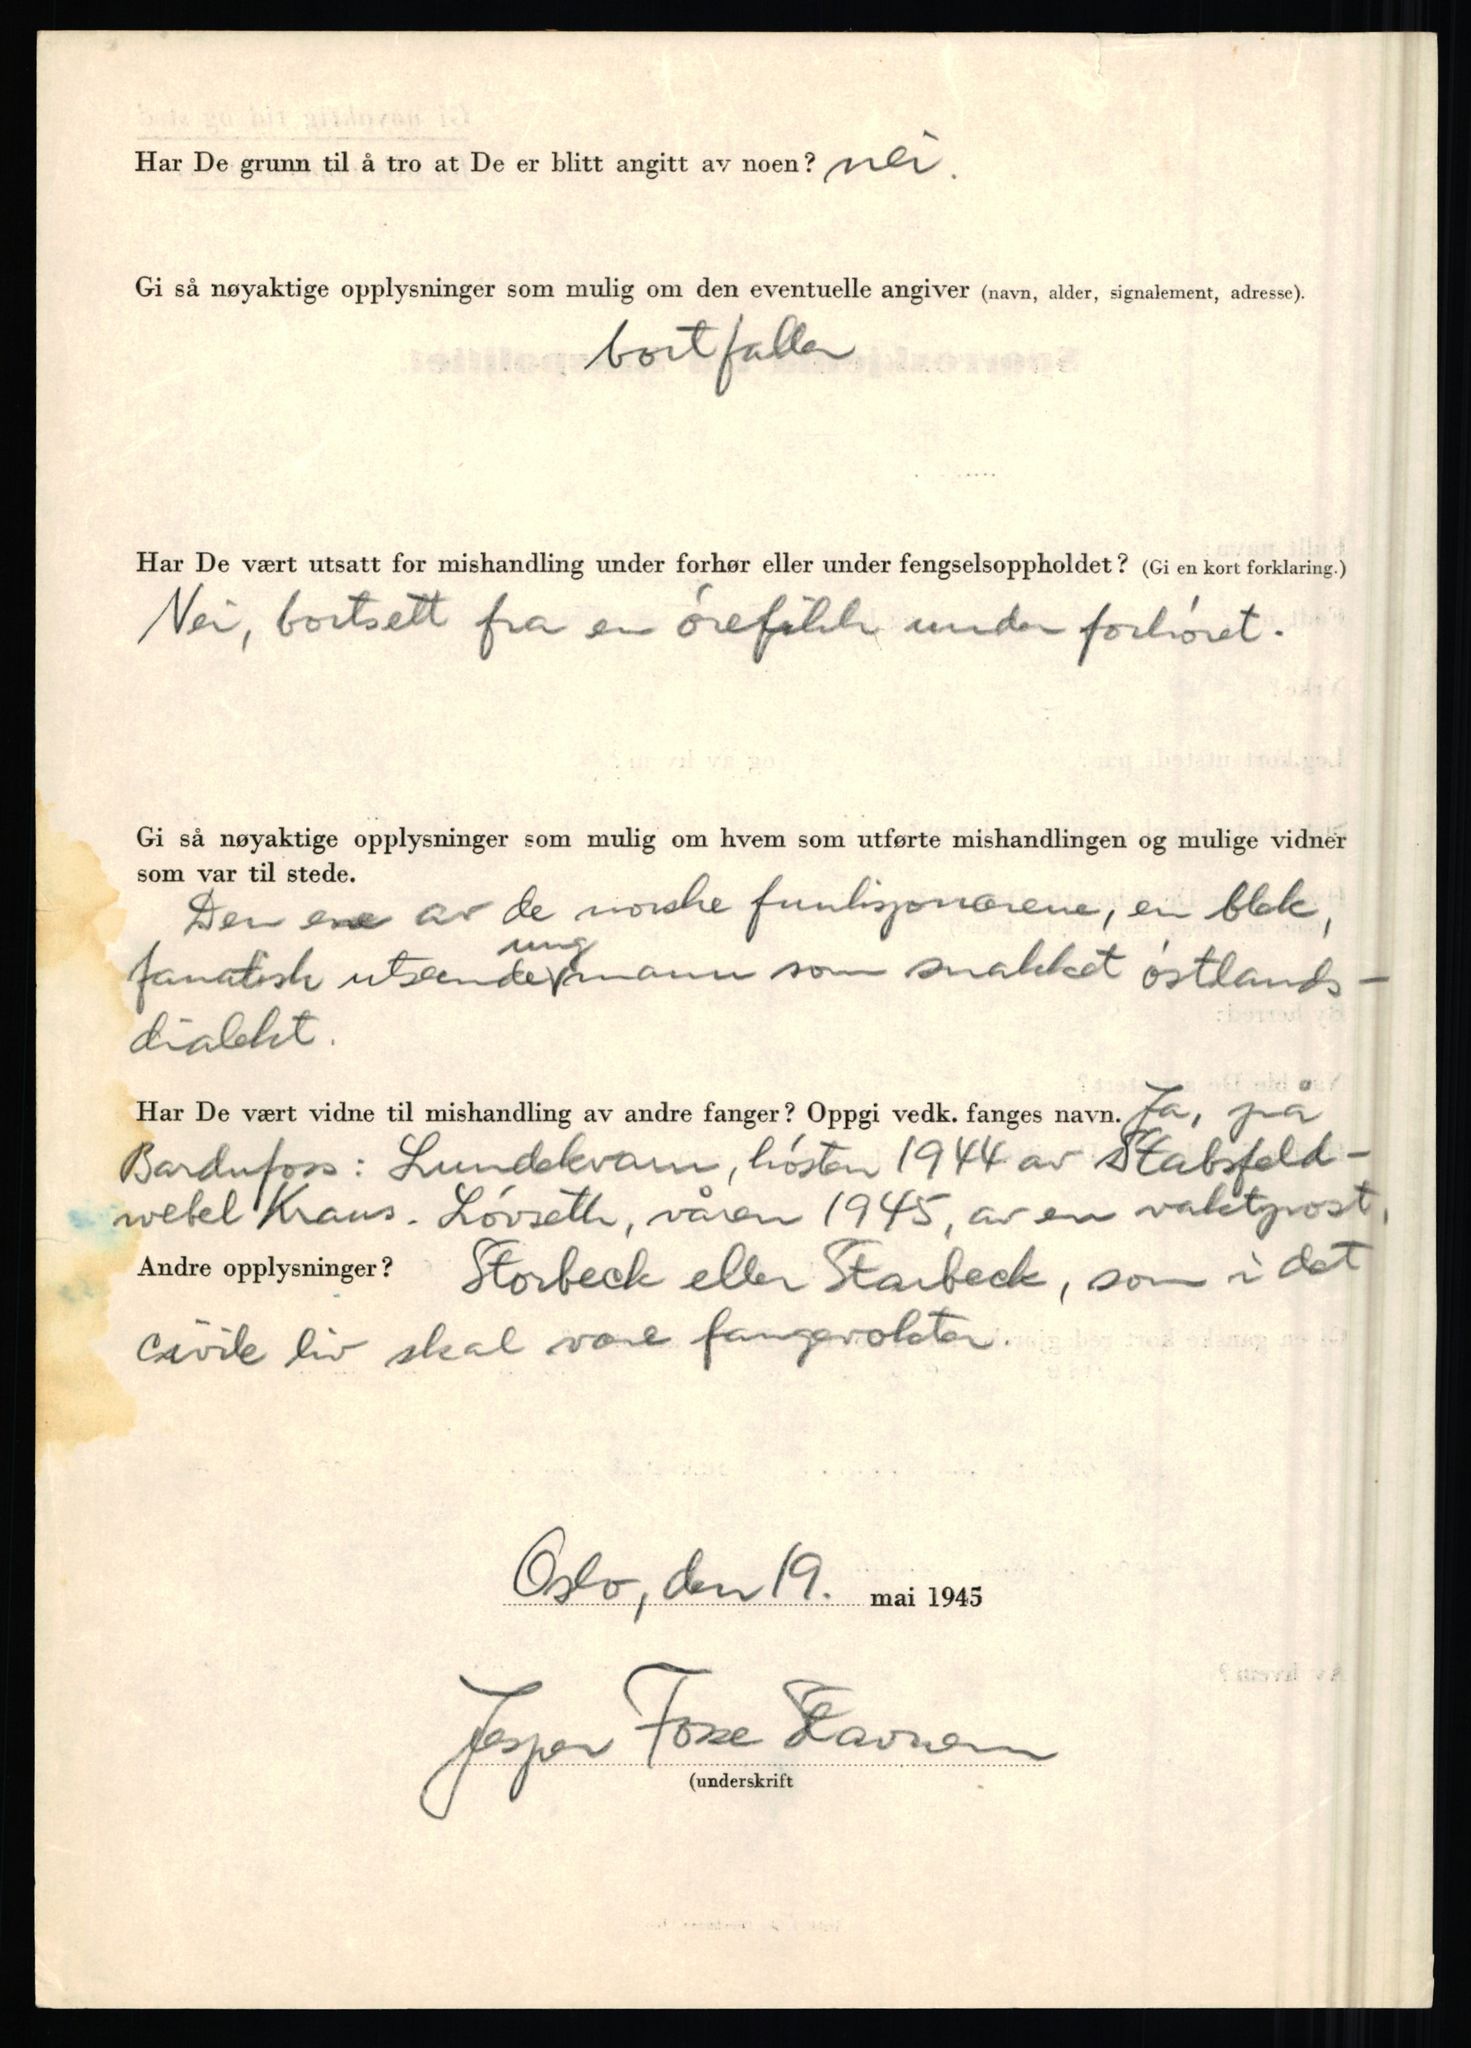 Har De grunn til å tro at De er blitt angitt av noen? nei.
Gi så nøyaktige opplysninger som mulig om den eventuelle angiver (navn, alder, signalement, adresse).
bortfaller
Har De vært utsatt for mishandling under forhør eller under fengselsoppholdet? (Gi en kort forklaring.)
Nei, bortsett fra en órefikk under forhóret.
Gi så nøyaktige opplysninger som mulig om hvem som utførte mishandlingen og mulige vidner
som var til stede.
Den ene av de norske funksjonærene, en blek,
fanatisk utseende ung mann som snakket óstlands-
dialekt.
Har De vært vidne til mishandling av andre fanger? Oppgi vedk. fanges navn. Ja, på
Bardufoss: Lundekvam, hósten 1944 av Stabsfeld-
webel Kraus. Lóvseth, våren 1945, av en vaktpost,
Andre opplysninger? Storbeck eller Starbeck, som i det
civile liv skal være fangevokter.
Oslo, den 19. mai 1945
Jesper Fosse Stavnem
(underskrift